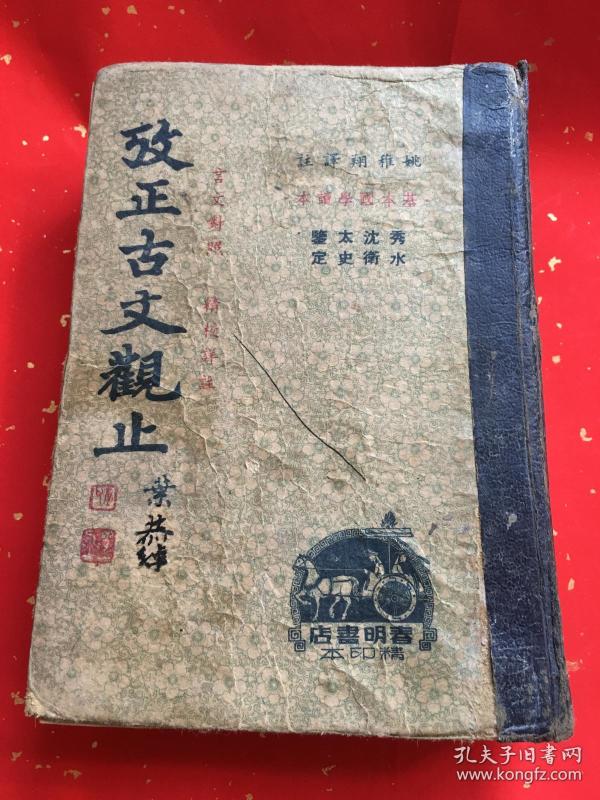 姚稚翔譯註
基本國學讀本
秀水
沈衛
太史
鑒定
言文對照 精校詳註
攷正古文觀止
葉恭綽
春明書店
精印本
孔夫子旧书网
www.kongfz.com